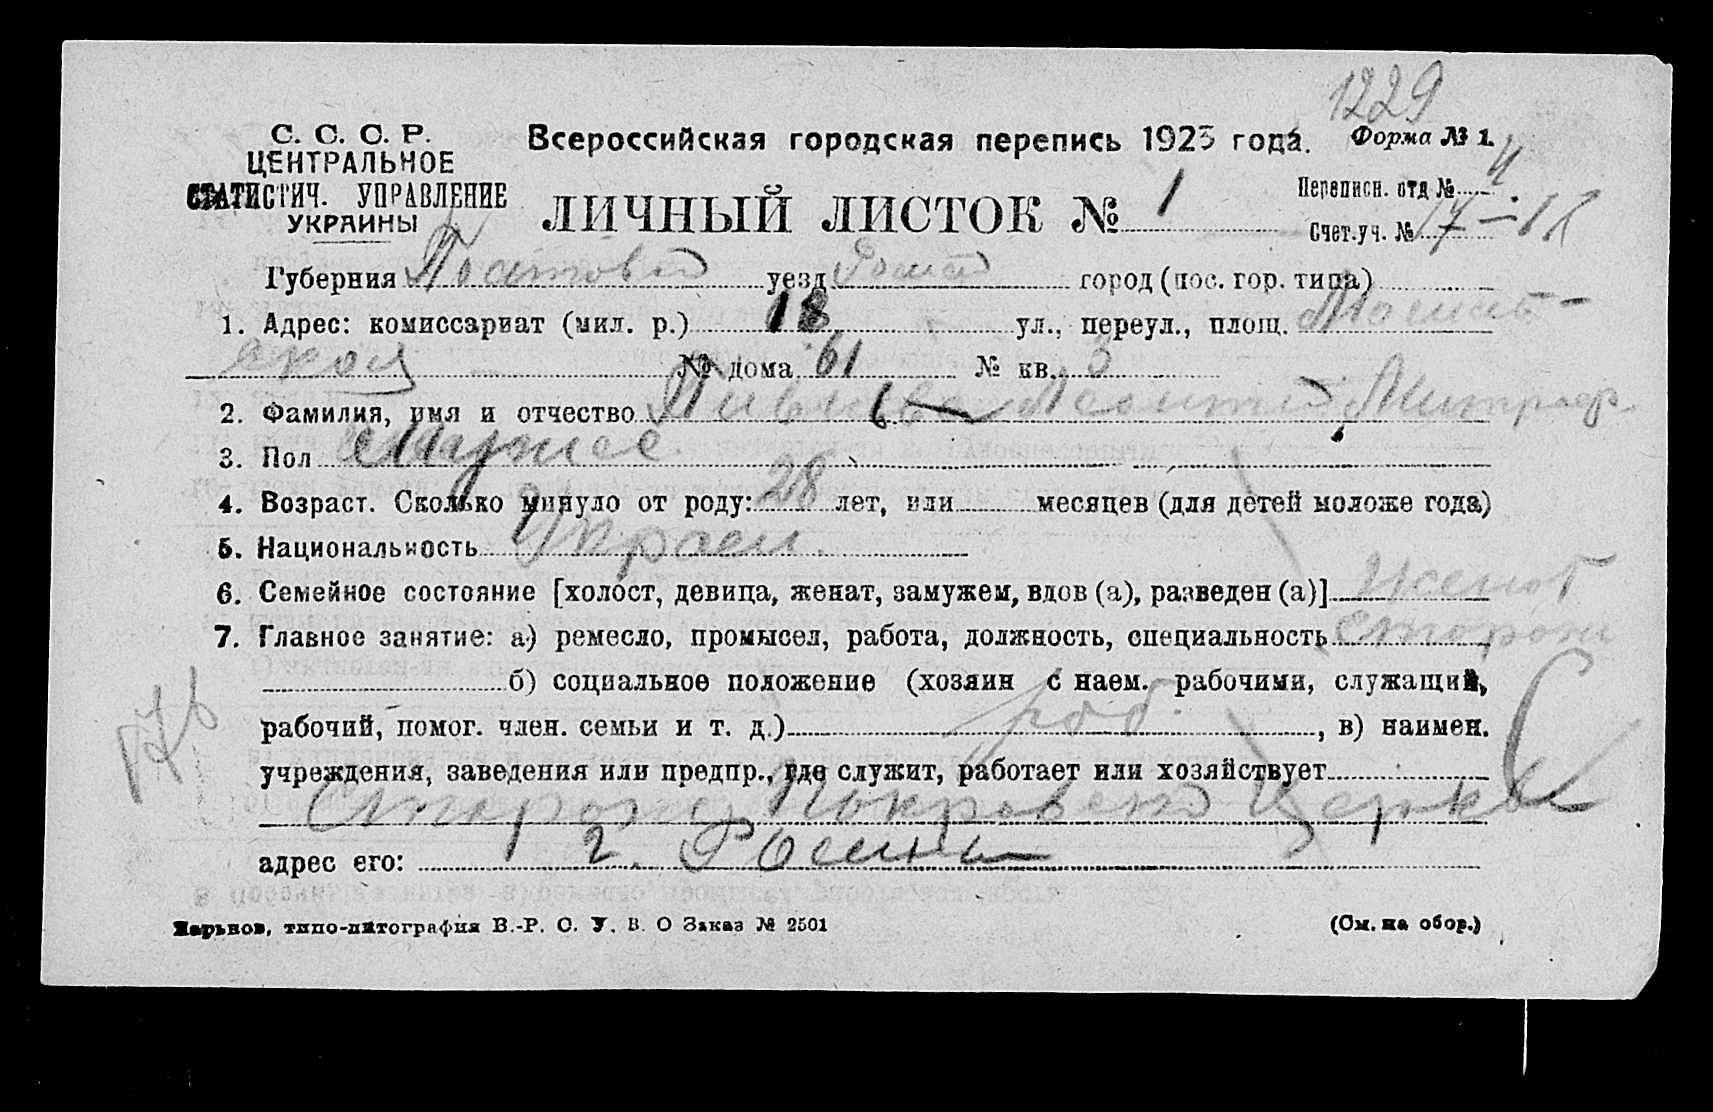 1229
С. С. С. Р.
ЦЕНТРАЛЬНОЕ
СТАТИСТИЧ. УПРАВЛЕНИЕ
УКРАИНЫ
Всероссийская городская перепись 1923 года. Форма № 1.
ЛИЧНЫЙ ЛИСТОК № 1
Переписн. отд №
Счет.уч. № 17-
Губерния уезд город (пос. гор. типа)
1. Адрес: комиссариат (мил. р.) 18 ул., переул., площ.
ской № дома 61 № кв. 3
2. Фамилия, имя и отчество
3. Пол
4. Возраст. Сколько минуло от роду: 28 лет, или месяцев (для детей моложе года)
5. Национальность Украен.
6. Семейное состояние [холост, девица, женат, замужем, вдов (а), разведен (а)] женат
7. Главное занятие: а) ремесло, промысел, работа, должность, специальность сторож
б) социальное положение (хозяин с наем. рабочими, служащий,
рабочий, помог. член. семьи и т. д.) роб. , в) наимен.
учреждения, заведения или предпр., где служит, работает или хозяйствует
Сторож Церкви
адрес его: г. Ромны
Харьков, типо-литография В.-Р. С. У. В. О Заказ № 2501
(См. на обор.)